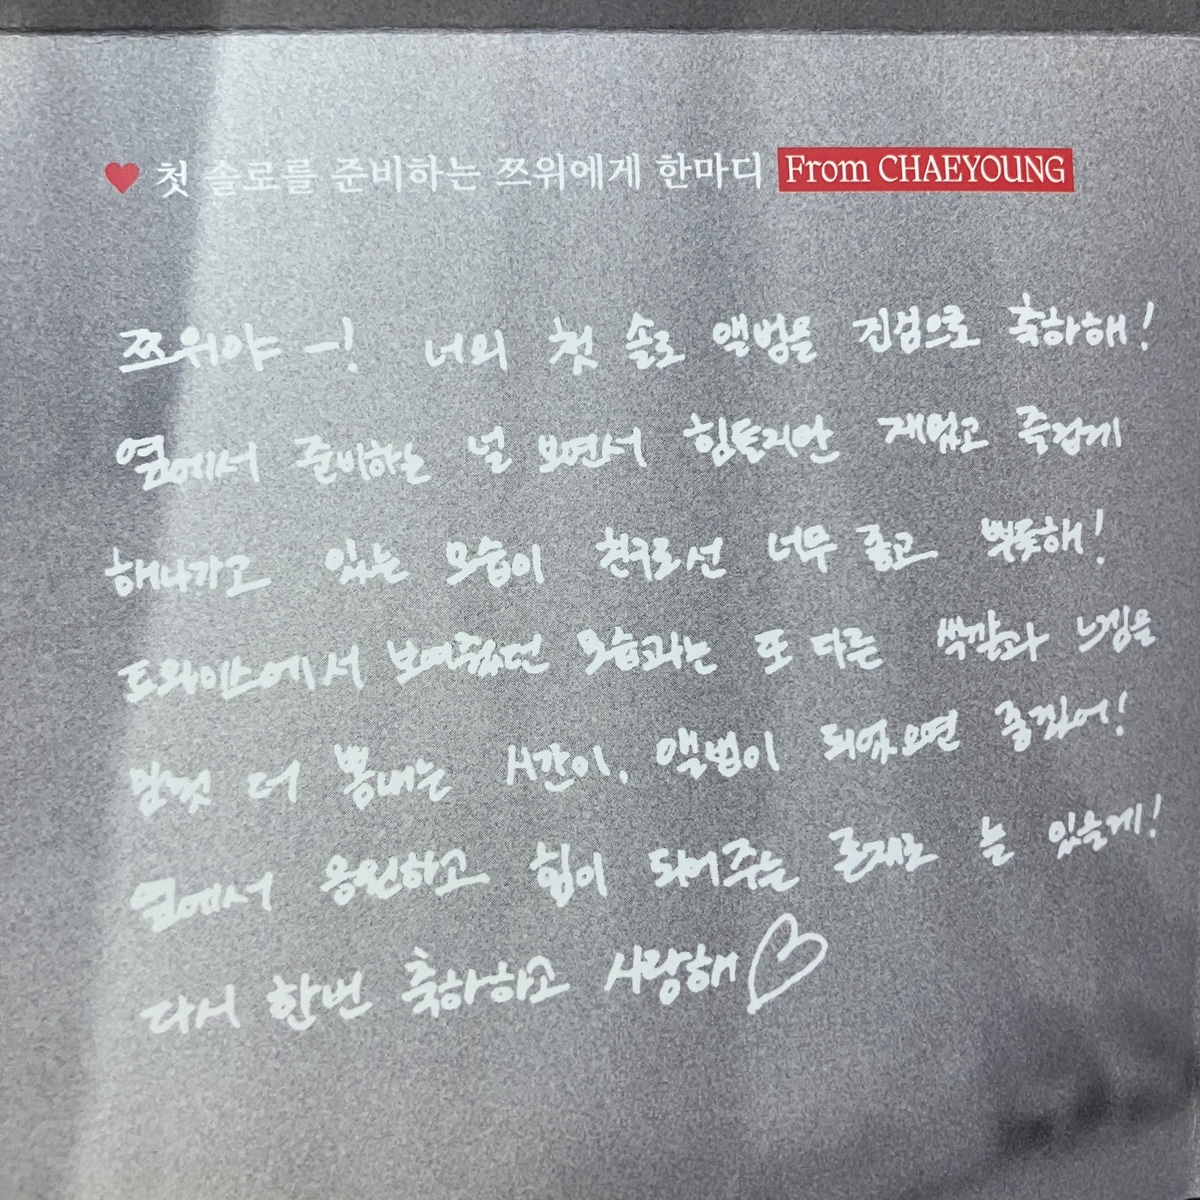 ♥ 첫 솔로를 준비하는 쯔위에게 한마디 From CHAEYOUNG
쯔위야 -! 너의 첫 솔로 앨범을 진심으로 축하해!
옆에서 준비하는 널 보면서 힘들지만 재밌고 즐겁게
해나가고 있는 모습이 친구로선 너무 좋고 뿌듯해!
트와이스에서 보여줬던 모습과는 또 다른 색깔과 느낌을
맘껏 더 뽐내는 시간이, 앨범이 되었으면 좋겠어!
옆에서 응원하고 힘이 되어주는 존재로 늘 있을게!
다시 한번 축하하고 사랑해♡